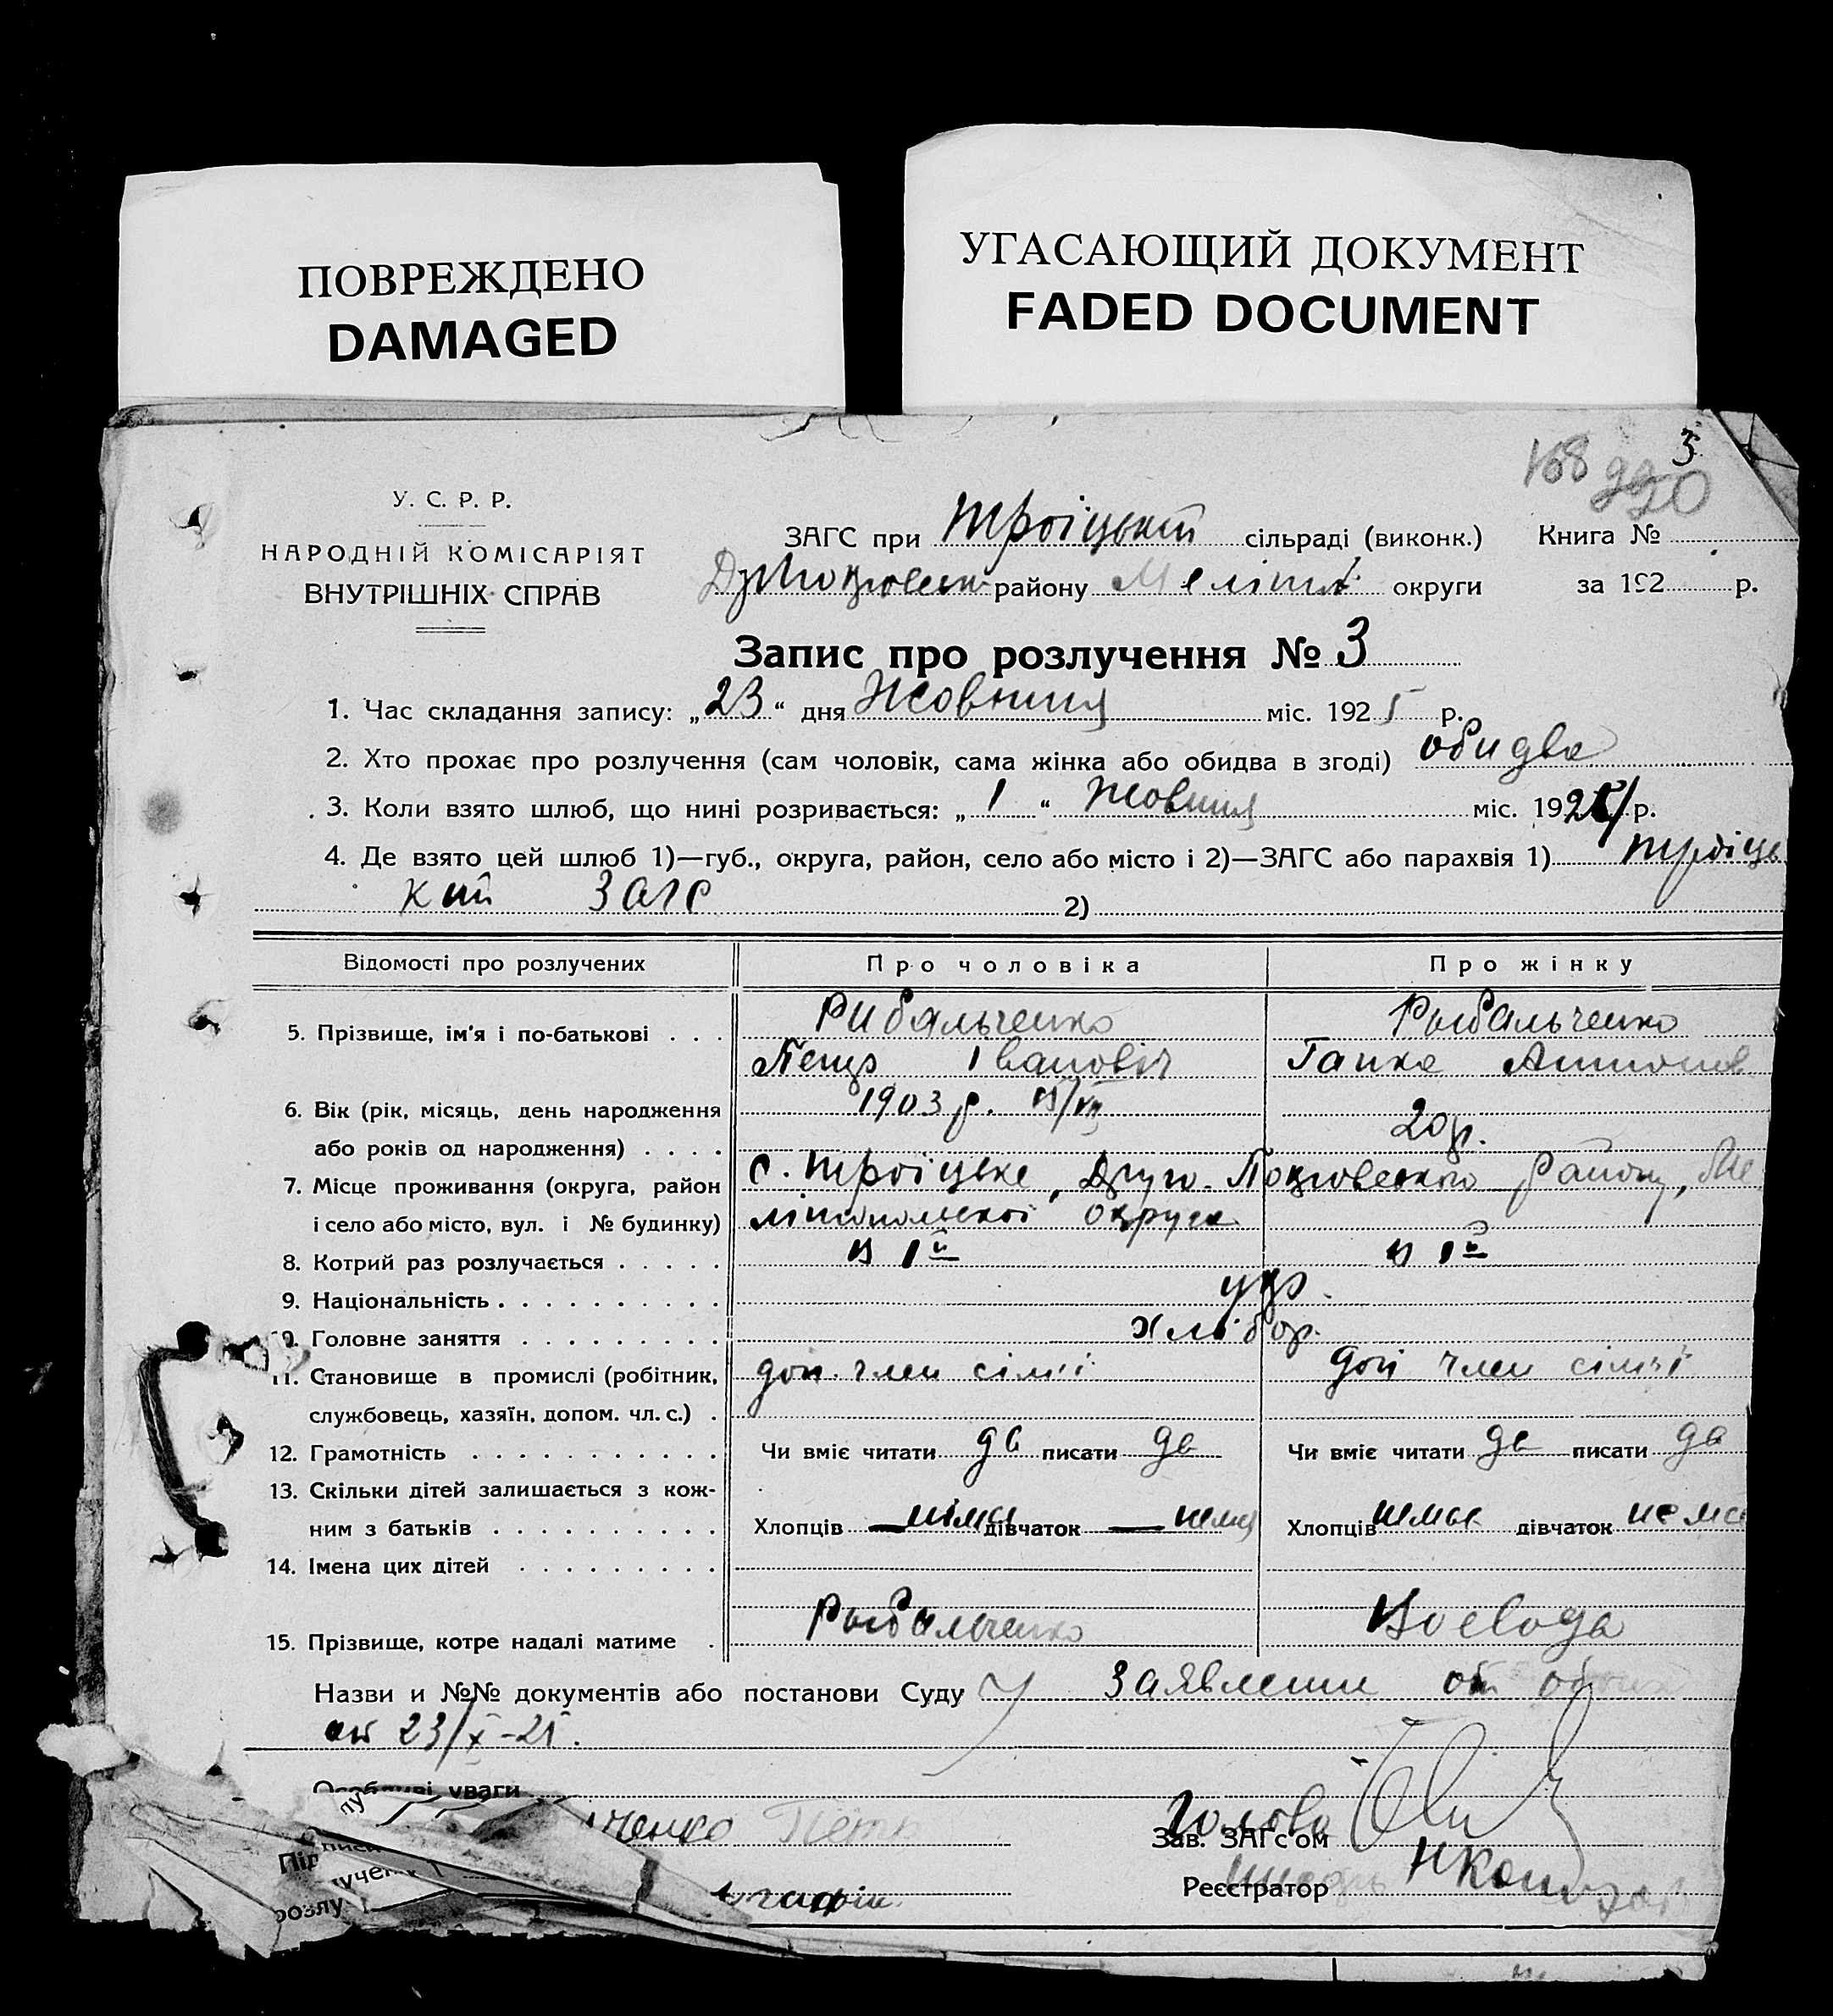 ПОВРЕЖДЕНО
DAMAGED
УГАСАЮЩИЙ ДОКУМЕНТ
FADED DOCUMENT
3
168
У. С. Р. Р.
НАРОДНІЙ КОМІСАРІЯТ
ВНУТРІШНІХ СПРАВ
ЗАГС при Троіцькій сільраді (виконк.) Книга №
району Меліт. округи за 192 р.
Запис про розлучення № 3
1. Час складання запису: „23“ дня Жовтня міс. 1925 р.
2. Хто прохає про розлучення (сам чоловік, сама жінка або обидва в згоді) обидва
3. Коли взято шлюб, що нині розривається: „1“ Жовтня міс. 192 р.
4. Де взято цей шлюб 1)—губ., округа, район, село або місто і 2)—ЗАГС або парахвія 1) Троіць
кий Загс 2)
Відомості про розлучених Про чоловіка Про жінку
5. Прізвище, ім'я і по-батькові . . . Рибальченко Рыбальченко
Петр Івановіч Гапка Антонов
6. Вік (рік, місяць, день народження 1903 р.
або років од народження) . . . . 20 р.
7. Місце проживання (округа, район с. Троіцьке, Друго-Покровського району, Ме
і село або місто, вул. і № будинку) літопольскоі округи
8. Котрий раз розлучається . . . . . в 1й в 1й
9. Національність . . . . . . . . . . укр.
10. Головне заняття . . . . . . . . . хлібор.
11. Становище в промислі (робітник, доп. член сімі доп член сімі
службовець, хазяїн, допом. чл. с.) .
12. Грамотність . . . . . . . . . . . Чи вміє читати да писати да Чи вміє читати да писати да
13. Скільки дітей залишається з кож-
ним з батьків . . . . . . . . . . Хлопців — німа дівчаток — нема Хлопців немає дівчаток нема
14. Імена цих дітей . . . . . . . . .
15. Прізвище, котре надалі матиме . Рыбальченко Воевода
Назви и №№ документів або постанови Суду Заявление от обоих
от 23/X-25.
Особливі уваги
ченко Петр
Голова
Зав. ЗАГс'ом
Реєстратор